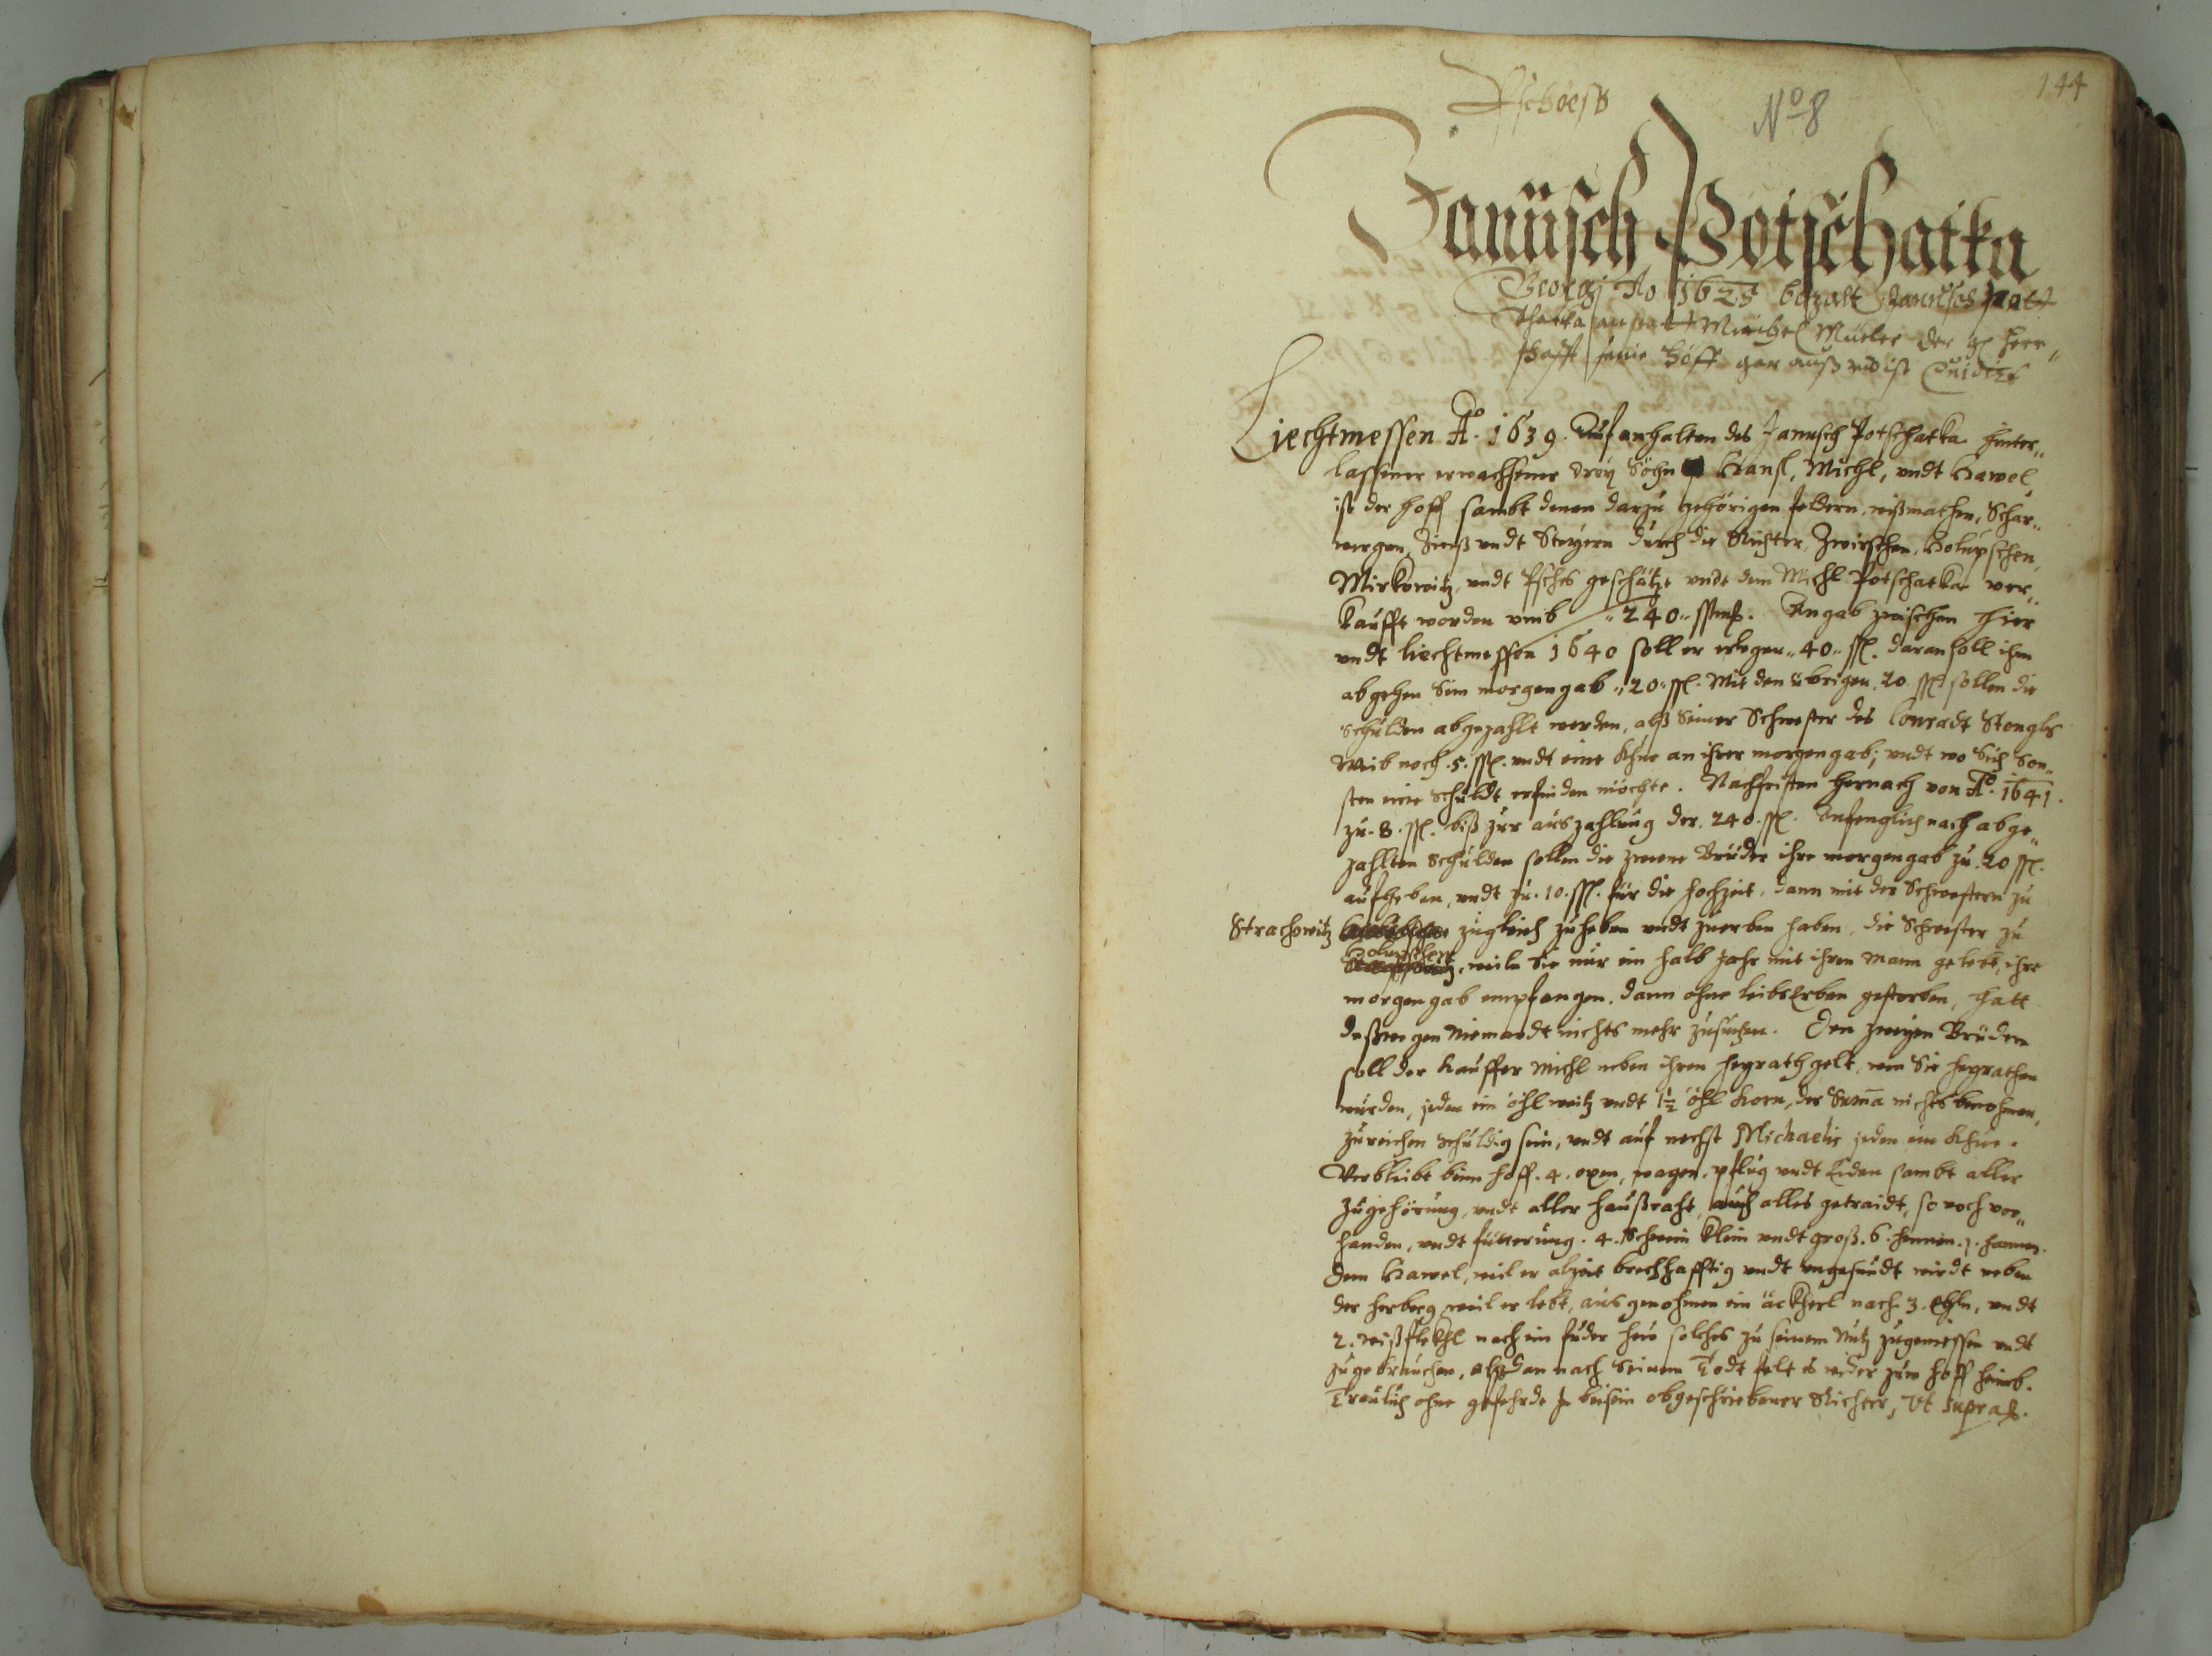 144
Pschöeß
No 8
Janüsch Potschatka
Georgj Ao 1625 bezalt Janusch Pott
schatka an statt Michel Müeler der gl herr„
schafft seine Höff gar auß vnd ist Quidirt
Liechtmessen Ao. 1639. Auf anhalten des Janusch Potschatka hinter„
lassener erwachsener drey Söhn Hansl, Michl, undt Hawel
ist der hoff sambt denen darzu gehörigen feldern, wißmathen, Schar„
wergen, Zinß undt Steyern durch die Richter, Zwirschen, Holupschen,
Mirkowitz, undt Psches geschätzt undt dem Michl Potschatka ver„
kaufft worden umb „240„ ssmß. Angab zwischen hier
undt liechtmessen 1640 soll er erlegen „40„ ssl. daran soll ihm
abgehen Sein morgengab „20„ ssl. Mit den übrigen 20 ssl sollen die
Schulden abgezahlt werden, alß Seiner Schwester des Conradt Stengls
Weib noch 5. ssl. undt eine Khue an ihrer morgengab; undt wo Sich Son„
sten eine Schuldt erfinden möchte. Nachfristen hernach von Ao. 1641.
zu 8. ssl. biß zur auszahlung der 240. ssl. Anfenglich nach abge„
zahlten Schulden sollen die zweene Brüder ihre morgengab zu 20 ssl.
aufheben, undt zu 10. ssl. für die hochzeit, dann mit der Schwestern zu
Strachowitz zugleich zuheben undt zuerben haben, die Schwester zu
Holupschen, weiln Sie nur ein halb Jahr mit ihren mann gelebt, ihre
morgengab empfangen, dann ohne leibs Erben gestorben, hatt
deßwegen Niemandt nichts mehr zusuchen. Den zweyen Brüdern
soll der Kauffer Michl neben ihren heyrathgelt, wen Sie heyrathen
würden, jeden ein öhl weitz undt 1½ öhl Korn, der Suma nichts benohmen,
zureichen schuldig sein, undt auf nechst Michaelis jeden ein Khue.
Verbleibt beim hoff. 4. oxen, wagen, pflug undt Eiden sambt aller
zugehörung, undt aller haußraht, auch alles getraidt, so noch vor„
handen, undt fütterung. 4. Schwein klein undt groß. 6. hennen. 1. hannen.
Dem Hawel, weil er alzeit brechhafftig undt ungesundt wirdt neben
der herberg, weil er lebt, ausgenohmen ein äckherl nach 3. öhln, undt
2. wißflekhl nach ein fuder heü solches zu seinem Nutz zugeniessen undt
zugebrauchen, alßdan nach Seinem Todt felt es wider zum hoff heimb.
Treulich ohne gefehrde In beisein obgeschriebener Richter, Vt supra.